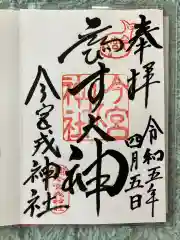 奉拝
令和五年
四月五日
ゑびす大神
今宮神社
今宮戎神社